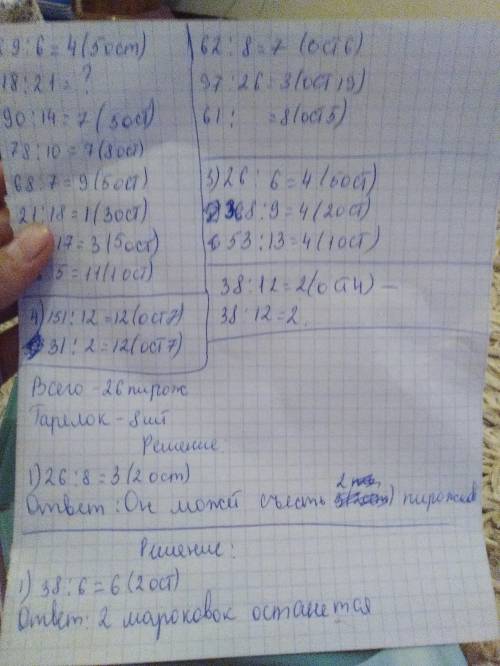 29:6=4(5ост)
18:21=?
90:14=7(3ост)
78:10=7(8ост)
68:7=9(5ост)
21:18=1(3ост)
17=3(5ост)
5=11(1ост)
4)151:12=12(ост7)
31:2=12(ост7)
62:8=7 (ост6)
97:26=3(ост19)
61: =8(ост5)
3)26:6=4(5ост)
38:9=4(2ост)
53:13=4(1ост)
38:12=2(ост4) –
38:12=2.
Всего -26 пирож
Тарелок -8шт
Решение
1)26:8=3(2ост)
Ответ: Он может съесть 2 пирожков
Решение:
1) 38:6=6(2ост)
Ответ: 2 мароковок останется